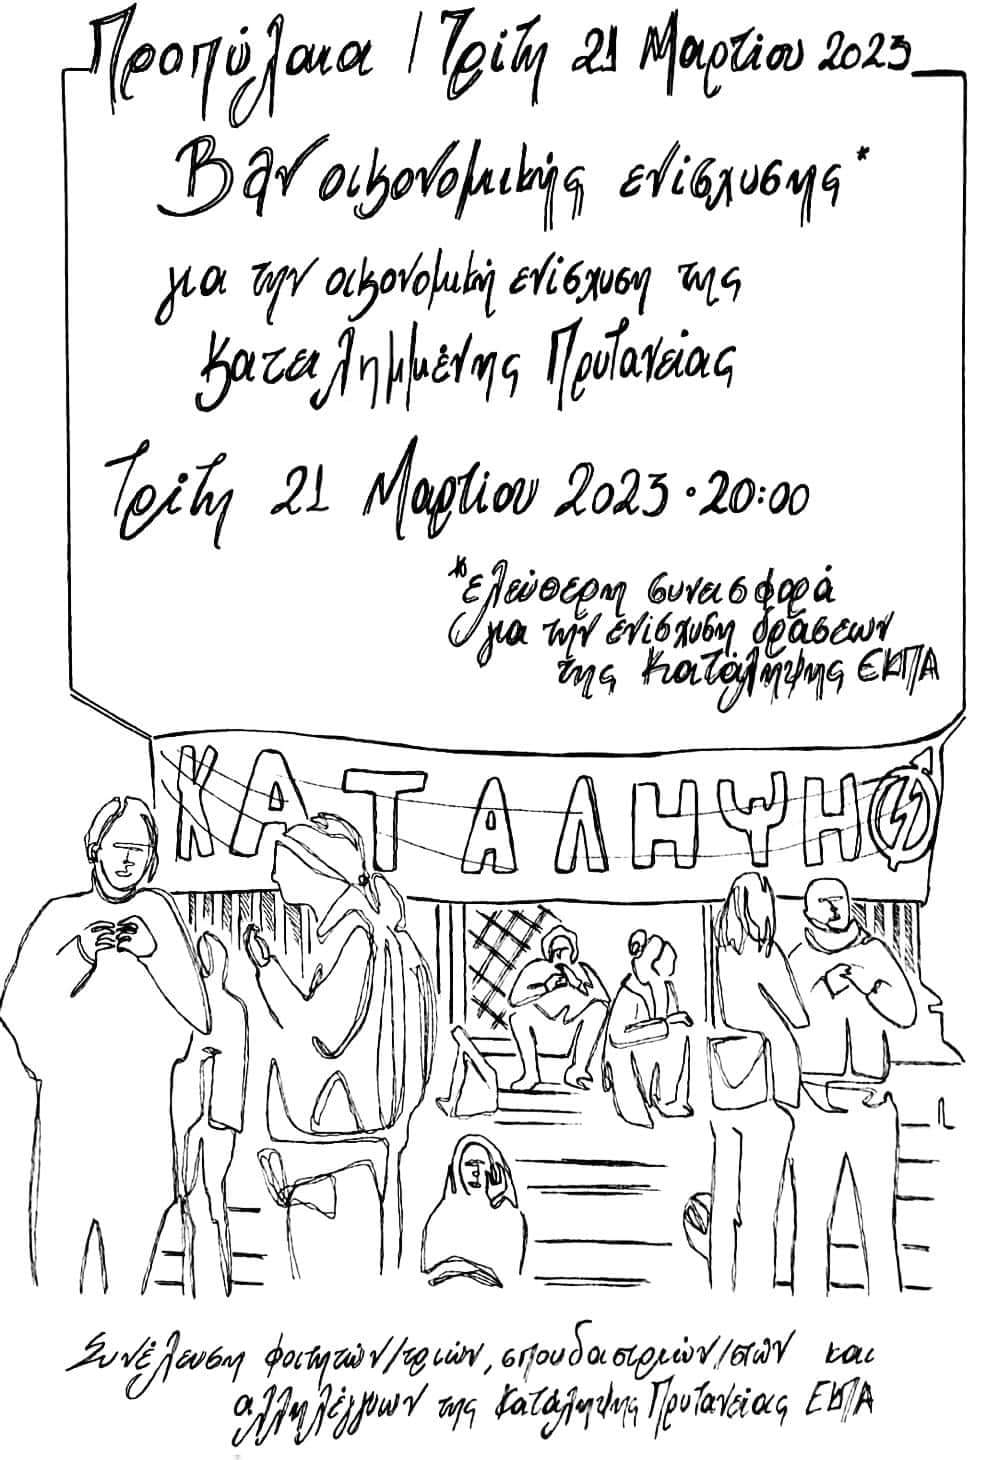 Προπύλαια / Τρίτη 21 Μαρτίου 2023
Βαν οικονομικής ενίσχυσης*
για την οικονομική ενίσχυση της
Κατειλημμένης Πρυτανείας
Τρίτη 21 Μαρτίου 2023 • 20:00
*ελεύθερη συνεισφορά
για την ενίσχυση δράσεων
της Κατάληψης ΕΚΠΑ
ΚΑΤΑΛΗΨΗ
Συνέλευση φοιτητών/τριών, σπουδαστριών/στών και
αλληλέγγυων της Κατάληψης Πρυτανείας ΕΚΠΑ